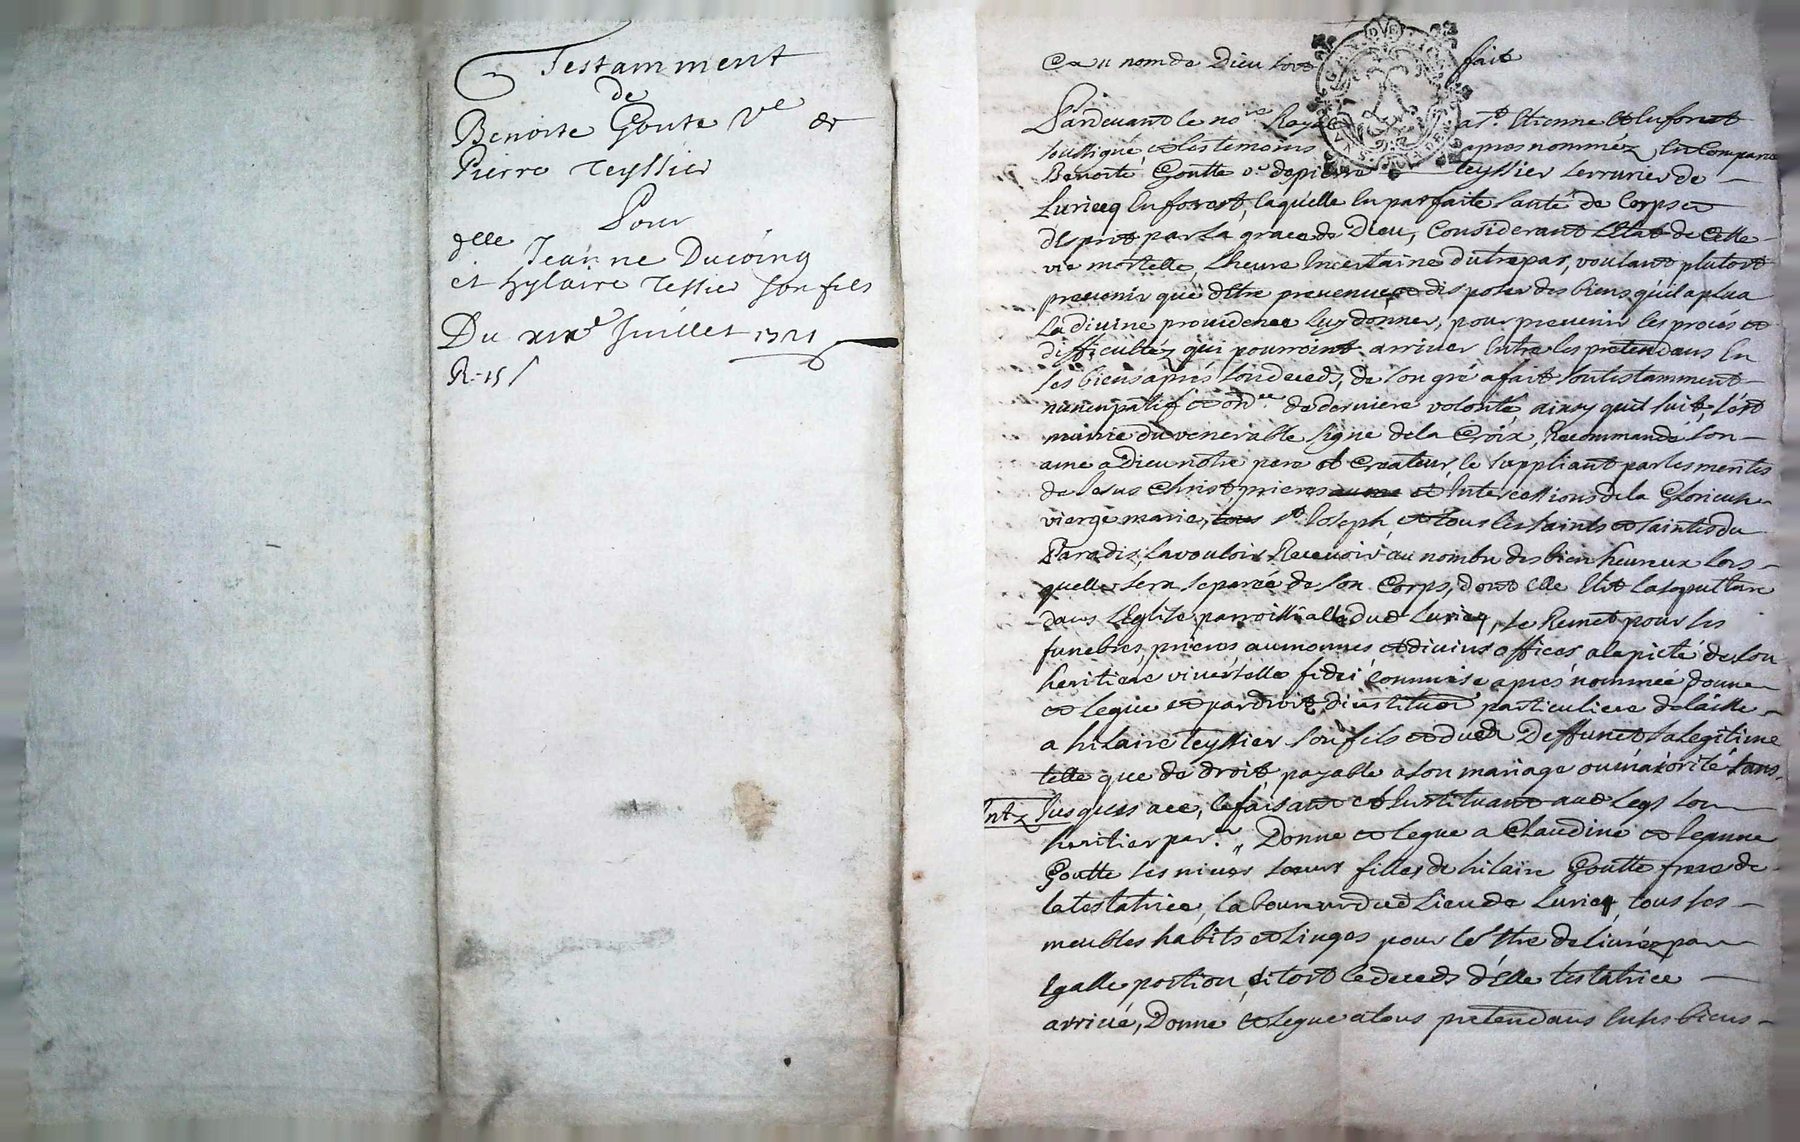 Testamment
de
Benoite Goute Ve de
Pierre Teyssier
Pour
dlle Jeanne Ducoing
et hylaire Tessier son fils
Du xixe Juillet 1721
R. 15 s
Au nom de Dieu soit fait
Pardevant le nore Royal a St Etienne en forest
soussigné et les temoins apres nommez, en
Benoite Goutte ve de pierre teyssier serrurier de
Luriecq en forest, laquelle en parfaite santé de Corps et
desprit par la grace de Dieu, Considerant l'état de cette
vie mortelle, l'heure Incertaine du trepas, voulant plutost
prevenir que d'etre prevenue, et disposer des biens qu'il a plu a
La divine providence luy donner, pour prevenir les procés et
difficultéz qui pourroint arriver entre les pretendans en
ses biens aprés son deceds, de son gré a fait son testamment
nuncupatif et ordce de derniere volonté ainsy quil suit, s'est
munie du venerable signe de la Croix, Recommandé son
ame a Dieu notre pere et Createur, le suppliant par les merites
de Jesus Christ, prieres et Intercessions de la Glorieuse
vierge marie, St Joseph, et tous les saints et saintes du
Paradis, la vouloir Recevoir au nombre des bien heureux lors
quelle sera separée de son Corps, dont elle Elit la sepulture
dans l'Eglise parroissialle dud Luriecq, se Remet pour ses
funebres, prieres aumonnes et divins offices a la pieté de son
heritiere universelle fidei commise aprés nommée donne
et legue et par droit d'institution particuliere delaisse
a hilaire teyssier son fils et dud Deffunct sa Legitime
telle que de droit, payable a son mariage ou majorité sans
Intz Jusques a ce, le faisant et Instituant aud Legs son
heritier par.er, Donne et legue a Claudine et Jeanne
Goutte ses nieces soeurs filles de hilaire Goutte frere de
la testatrice, laboureur dud Lieu de Luriecq, tous ses
meubles habits et linges pour leur etre delivréz par
Egalle portion, sitost le deceds d'Elle testatrice
arrivé, Donne et legue a tous pretendans en ses biens